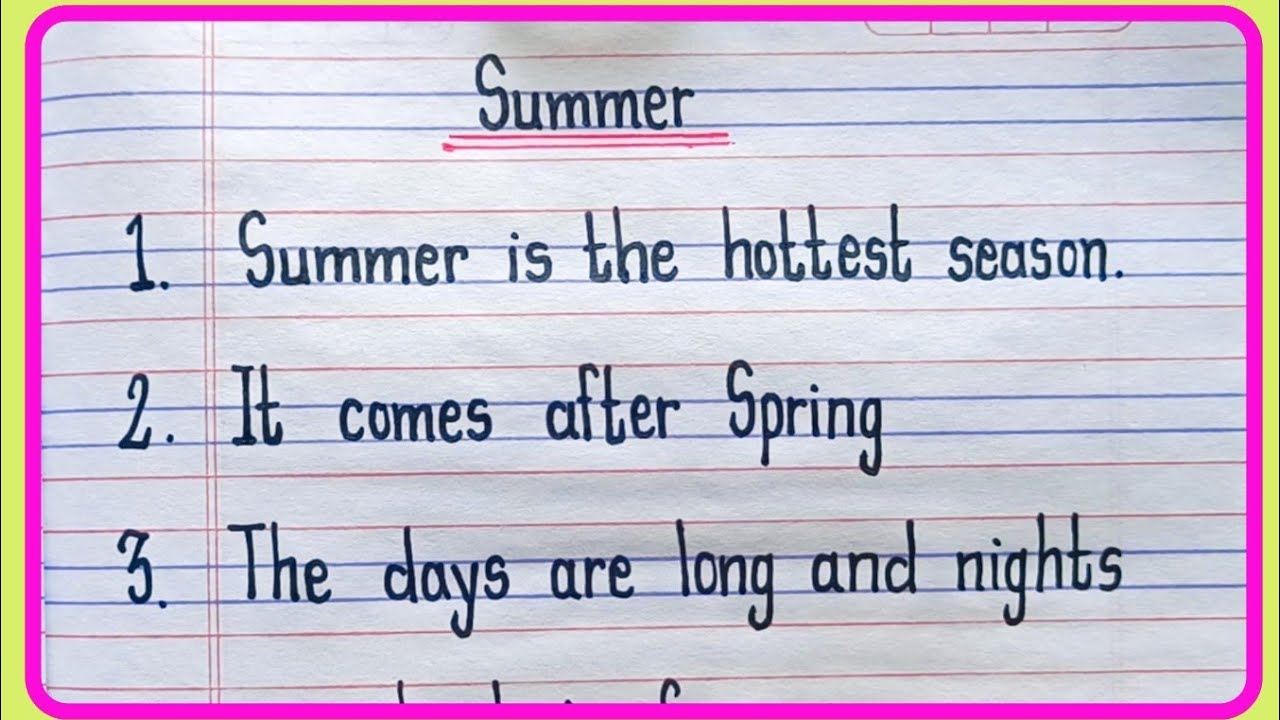 Summer
1. Summer is the hottest season.
2. It comes after Spring
3. The days are long and nights